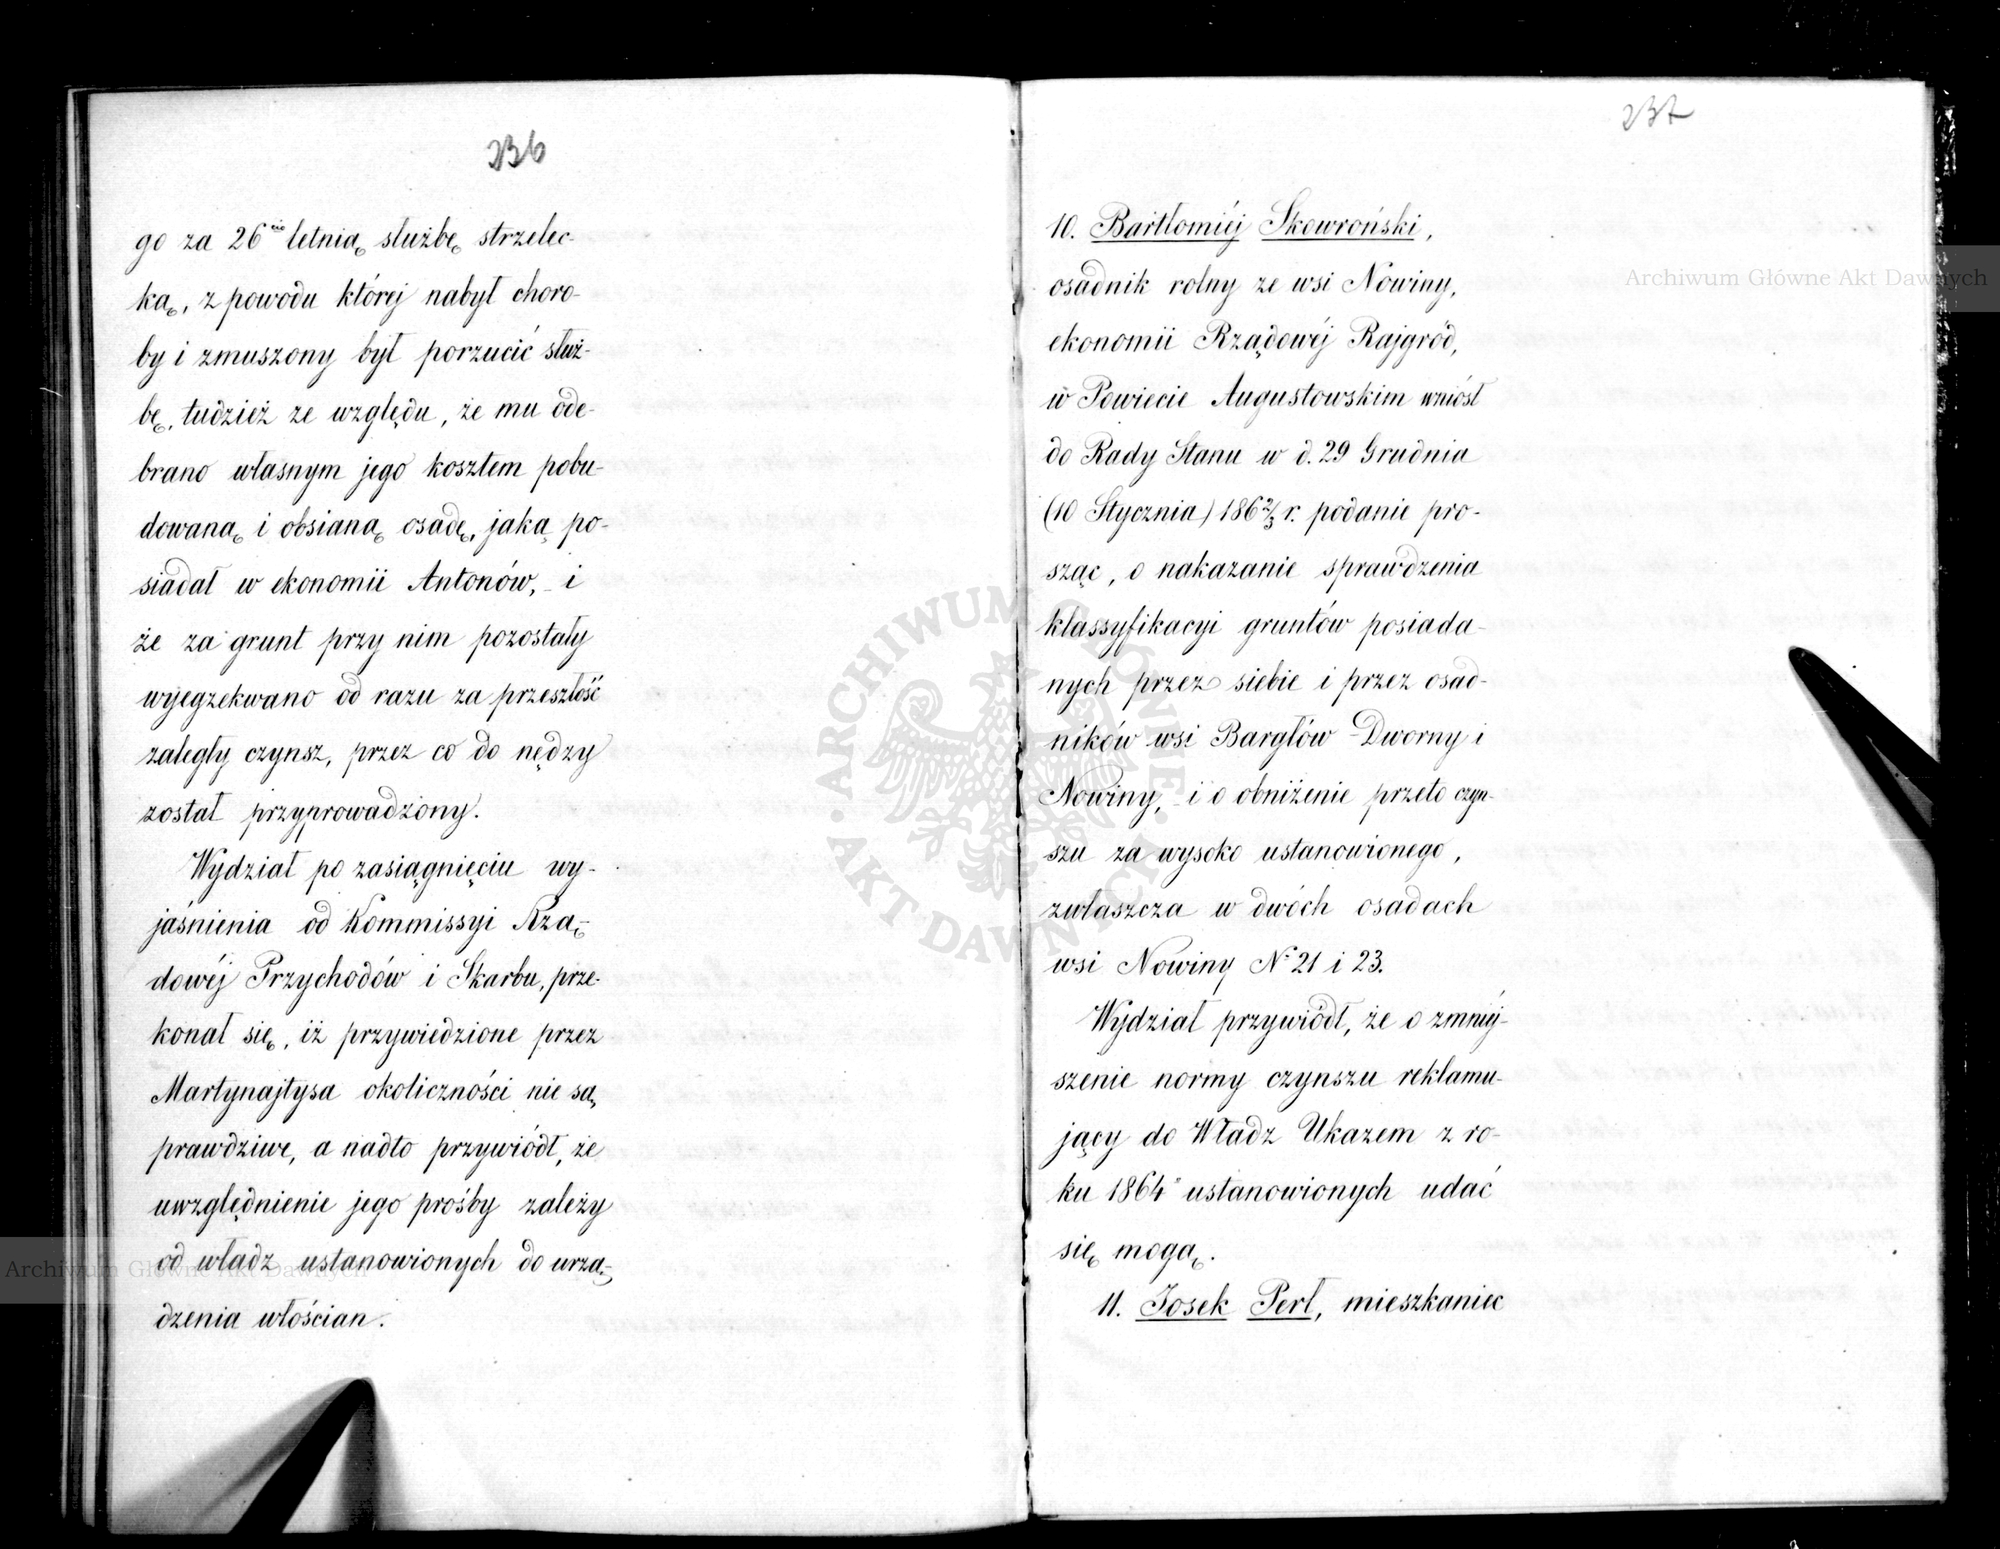 236
go za 26cio letnią służbę strzelec-
ką, z powodu której nabył choro-
by i zmuszony był porzucić służ-
bę, tudzież ze względu, że mu ode-
brano własnym jego kosztem pobu-
dowaną i obsianą osadę, jaką po-
siadał w ekonomii Antonów, - i
że za grunt przy nim pozostały
wyegzekwano od razu za przeszłość
zaległy czynsz, przez co do nędzy
został przyprowadzony.
Wydział po zasiągnięciu wy-
jaśnienia od Kommissyi Rzą-
dowéj Przychodów i Skarbu, prze-
konał się, iż przywiedzione przez
Martynajtysa okoliczności nie są
prawdziwe, a nadto przywiódł, że
uwzględnienie jego prośby zależy
od władz ustanowionych do urzą-
dzenia włościan.
237
10. Bartłomiéj Skowroński,
osadnik rolny ze wsi Nowiny,
ekonomii Rządowéj Rajgród,
w Powiecie Augustowskim wniósł
do Rady Stanu w d. 29 Grudnia
(10 Stycznia) 1862/3 r. podanie pro-
sząc, o nakazanie sprawdzenia
klassyfikacyi gruntów posiada-
nych przez siebie i przez osad-
ników wsi Bargłów Dworny i
Nowiny, - i o obniżenie przeto czyn-
szu za wysoko ustanowionego,
zwłaszcza w dwóch osadach
wsi Nowiny No 21 i 23.
Wydział przywiódł, że o zmniéj-
szenie normy czynszu reklamu-
jący do Władz Ukazem z ro-
ku 1864 ustanowionych udać
się mogą.
11. Josek Perl, mieszkaniec
Archiwum Główne Akt Dawnych
Archiwum Główne Akt Dawnych
· ARCHIWUM GŁÓWNE · AKT DAWNYCH